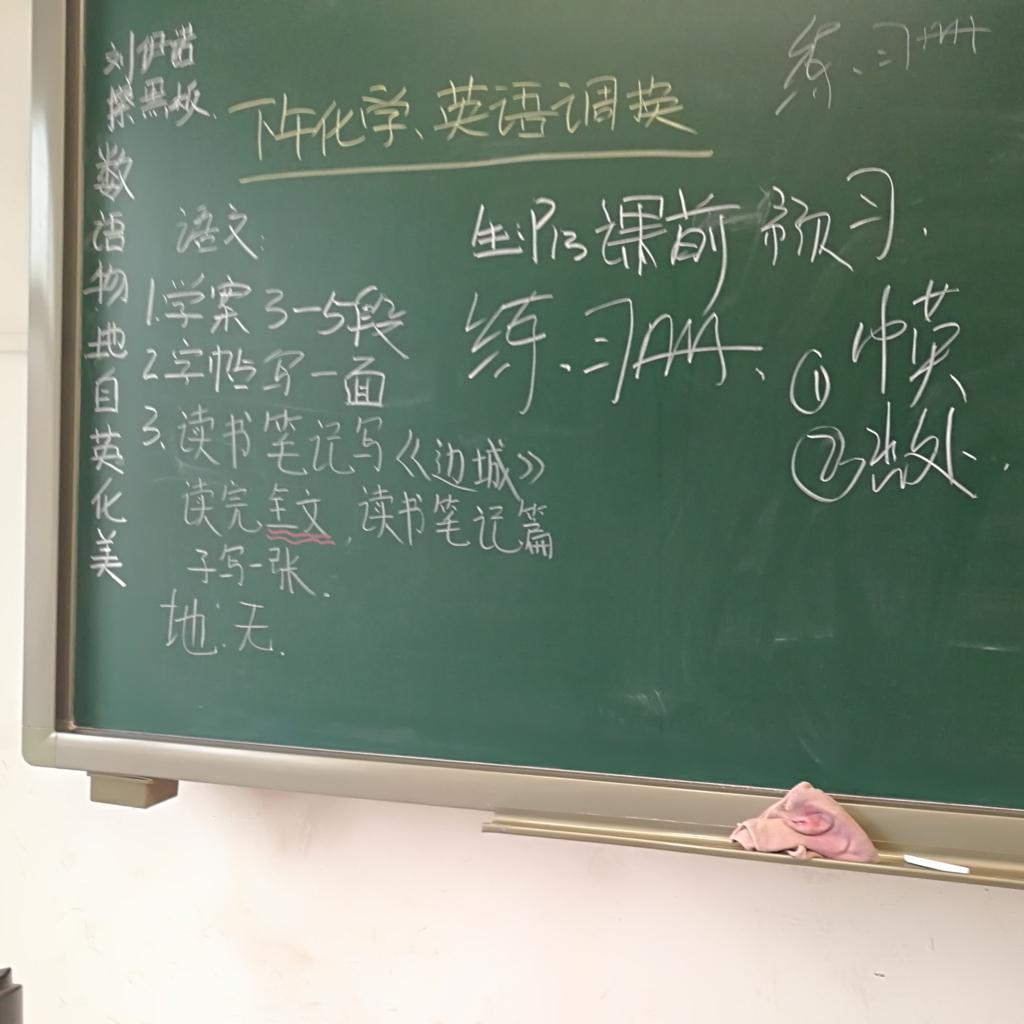 刘伊诺
擦黑板.
数语物地自英化美
下午化学、英语调换
练、习册
语文:
1.学案3-5段
2.字帖写一面
3.读书笔记写《边城》
读完全文,读书笔记篇
子写一张.
地:无.
生:P13课前预习.
练、习册、
①
②出处.